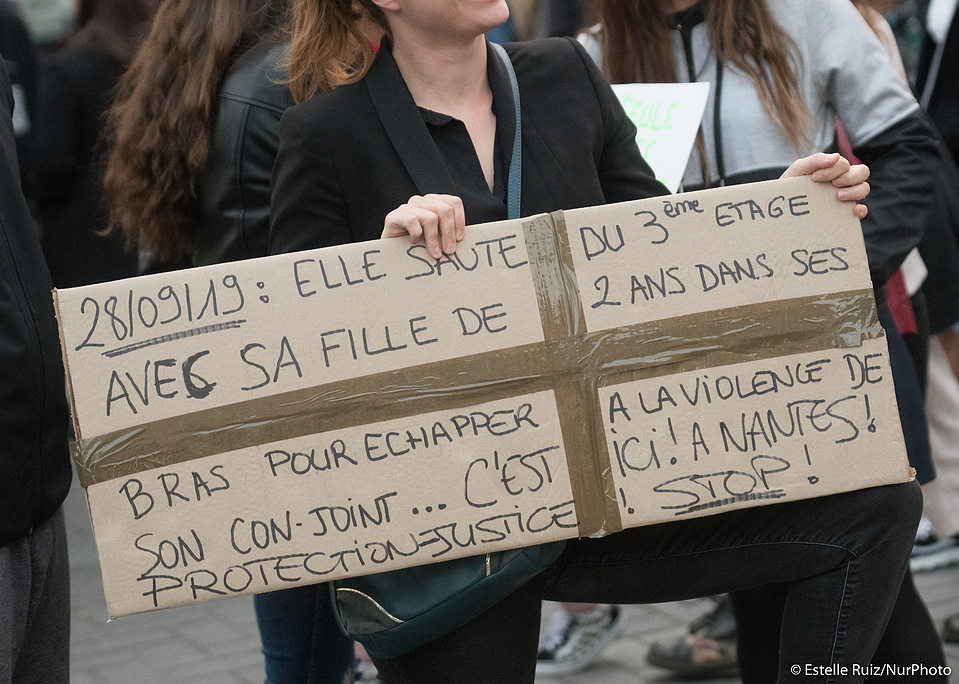 28/09/19 : ELLE SAUTE DU 3ème ETAGE
AVEC SA FILLE DE 2 ANS DANS SES
BRAS POUR ECHAPPER A LA VIOLENCE DE
SON CON-JOINT... C'EST ICI! A NANTES!
PROTECTION-JUSTICE ! STOP !
© Estelle Ruiz/NurPhoto